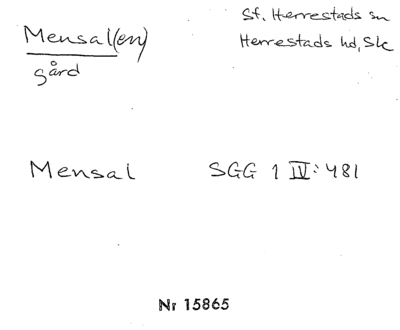 Mensal(en)
gård
St. Herrestads sn
Herrestads hd, Sk
Mensal SGG 1 IV: 481
Nr 15865